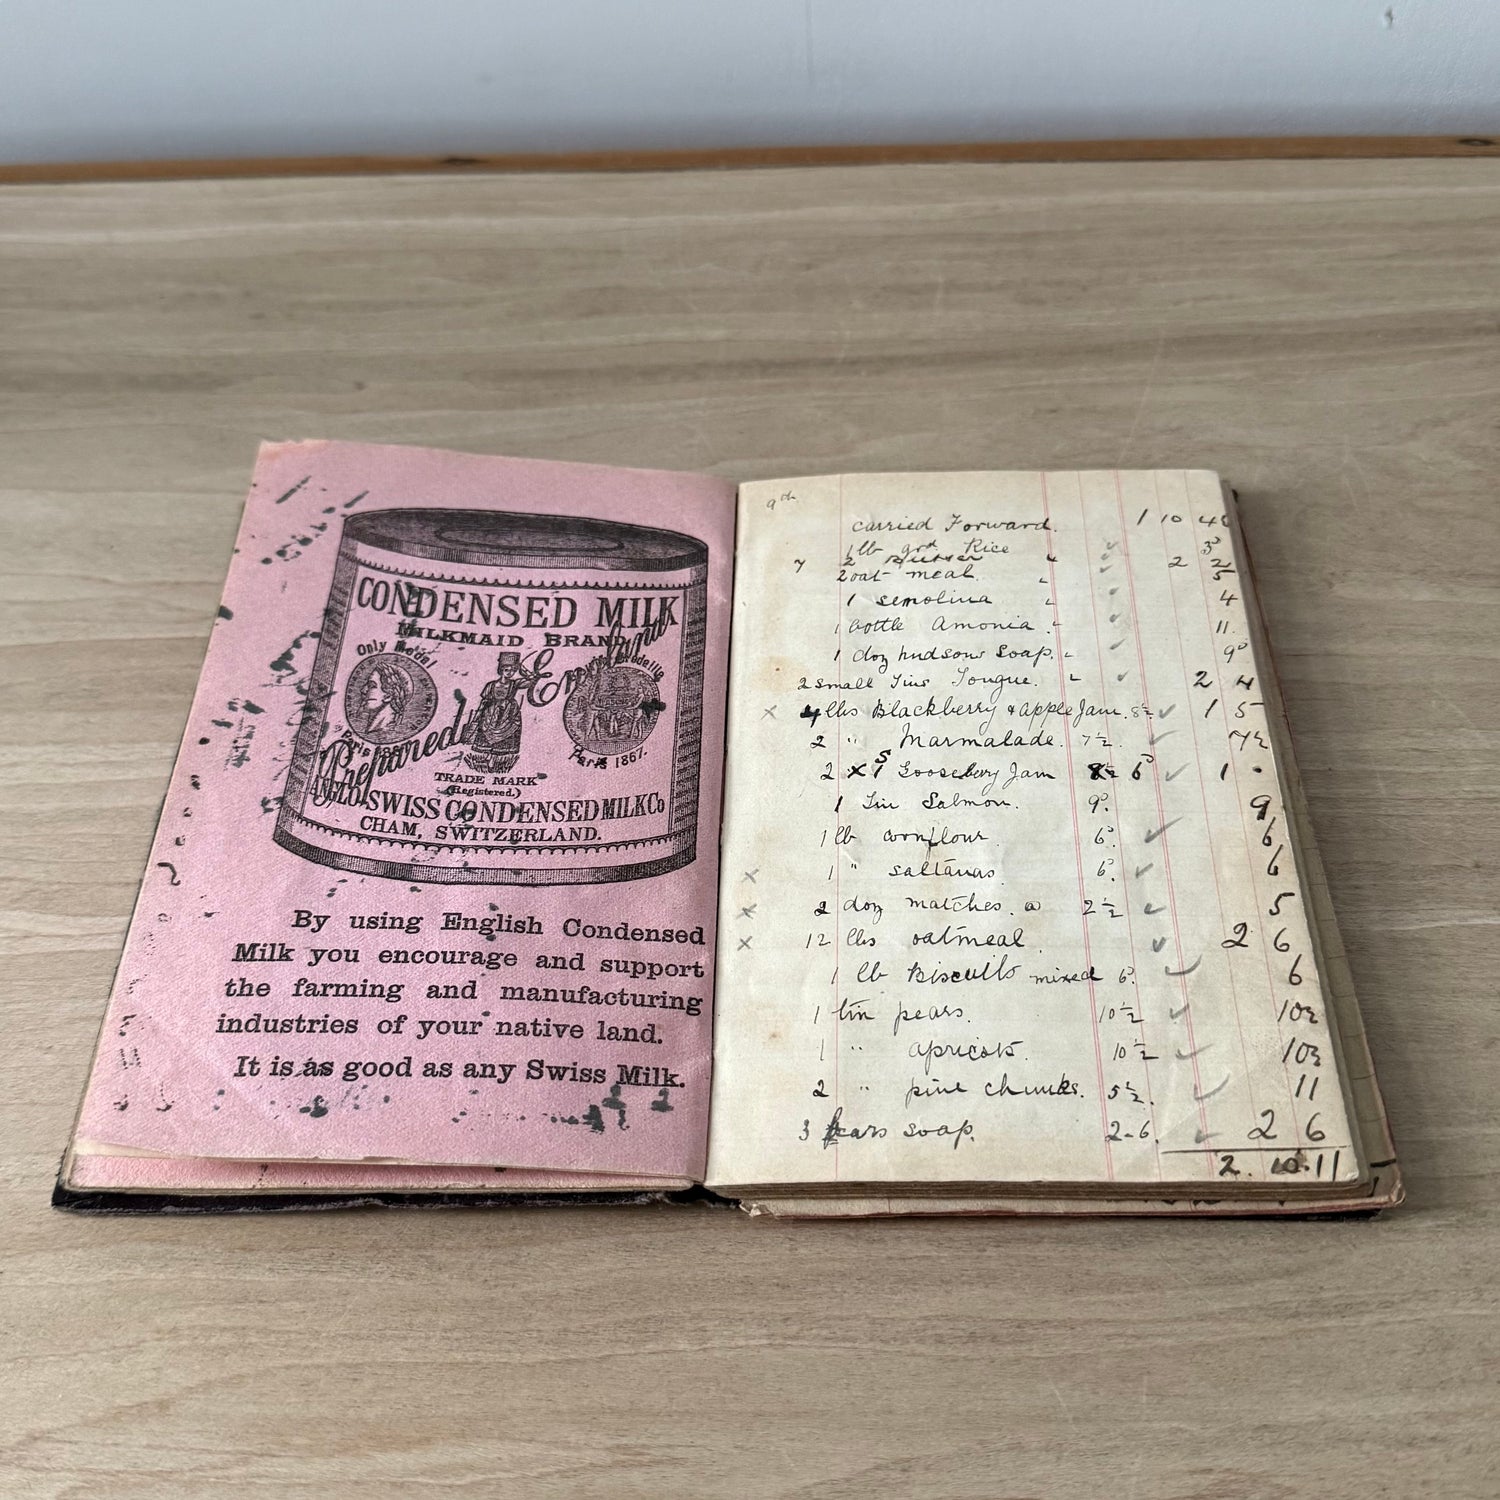 CONDENSED MILK
MILKMAID BRAND
Only Medal
Prepared in England
Paris 1867.
TRADE MARK
(Registered.)
ANGLO-SWISS CONDENSED MILK Co
CHAM, SWITZERLAND.
By using English Condensed
Milk you encourage and support
the farming and manufacturing
industries of your native land.
It is as good as any Swiss Milk.
9th
carried Forward. 1 10 4½
1 lb grd Rice 3
2 Butter 2 2
2 oat meal 5
1 semolina 4
1 bottle Amonia. 11.
1 doz hudsons Soap. 9
2 small Tins Tongue. 2 4
x 4 lbs Blackberry & apple Jam. 8½ 1 5
2 " Marmalade. 7½. 7½
2 Gooseberry Jam 6 1 -
1 Tin Salmon. 9. 9
1 lb cornflour 6. 6
x 1 " saltanas. 6. 6
x 2 doz matches. a 2½ 5
x 12 lbs oatmeal. 2 6
1 lb Biscuits mixed 6. 6
1 tin pears. 10½ 10½
1 " apricots. 10½ 10½
2 " pine chunks. 5½. 11
3 pears soap. 2-6. 2 6
2. 10. 11